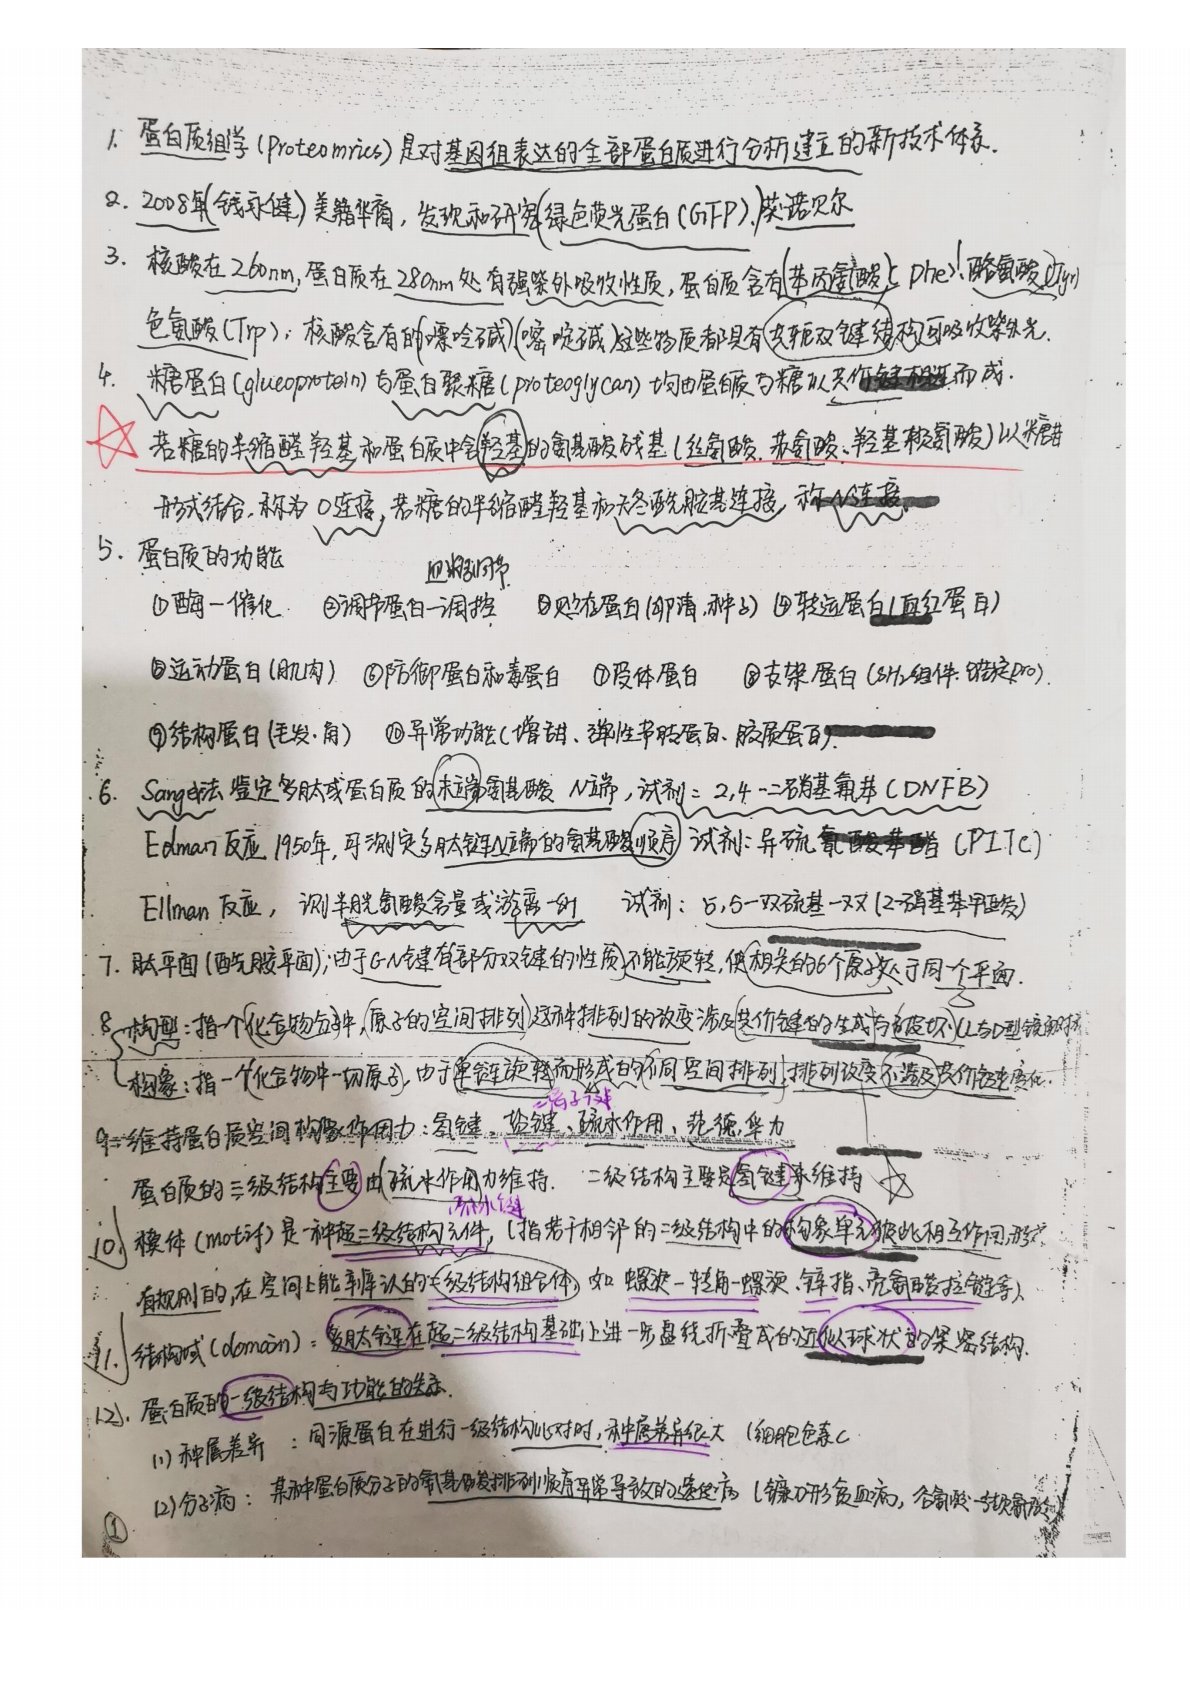 1. 蛋白质组学(proteomrics)是对基因组表达的全部蛋白质进行分析建立的新技术体系.
2. 2008年(钱永健)美籍华裔,发现和研究(绿色荧光蛋白(GFP).)获诺贝尔
3. 核酸在260nm,蛋白质在280nm处有强紫外吸收性质,蛋白质含有(苯丙氨酸( phe)、酪氨酸(Tyr)
色氨酸(Trp);核酸含有的(嘌呤碱)(嘧啶碱)这些物质都具有共轭双键结构可吸收紫外光.
4. 糖蛋白(glucoprotein)与蛋白聚糖(proteoglycan)均由蛋白质与糖以共价键相连而成.
若糖的半缩醛羟基和蛋白质中含羟基的氨基酸残基(丝氨酸、苏氨酸、羟基赖氨酸)以糖苷
形式结合,称为O连接,若糖的半缩醛羟基和天冬酰胺基连接,称N连接.
5. 蛋白质的功能
血糖调节
①酶—催化 ②调节蛋白—调控 ③贮存蛋白(卵清,种子) ④转运蛋白(血红蛋白)
⑤运动蛋白(肌肉) ⑥防御蛋白和毒蛋白 ⑦受体蛋白 ⑧支架蛋白(SH2组件.锚定pro).
⑨结构蛋白(毛发.角) ⑩异常功能(增甜、弹性节肢蛋白、胶质蛋白).
6. Sanger法鉴定多肽或蛋白质的末端氨基酸 N端,试剂:2,4-二硝基氟苯(DNFB)
Edman反应1950年,可测定多肽链N端的氨基酸顺序 试剂:异硫氰酸苯酯(PITC)
Ellman反应, 测半胱氨酸含量或游离-SH 试剂:5,5-双硫基-双(2-硝基苯甲酸)
7. 肽平面(酰胺平面);由于C-N键有(部分双键的性质)不能旋转,使相关的6个原子处于同一个平面.
8. 构型:指一个化合物分子中,原子的空间排列)这种排列的改变涉及共价键的生成与破坏(L与D型镜面对称
构象:指一个(化合物中一切原子),由于单键旋转而形成的不同空间排列;排列改变不涉及共价键变化.
=离子键
9. 维持蛋白质空间构象作用力:氢键、盐键、疏水作用、范德华力
蛋白质的三级结构主要由疏水作用力维持. 二级结构主要是氢键来维持
疏水键
10. 模体(motif)是一种超二级结构元件,(指若干相邻的二级结构中的构象单元彼此相互作用,形成
有规则的,在空间上能辨认的二级结构组合体,如 螺旋—转角—螺旋、锌指、亮氨酸拉链等).
11. 结构域(domain):多肽链在超二级结构基础上进一步盘绕折叠成的近似球状的紧密结构.
12). 蛋白质的一级结构与功能的关系.
(1)种属差异 :同源蛋白在进行一级结构比对时,种属差异很大 (细胞色素C
(2)分子病: 某种蛋白质分子的氨基酸排列顺序异常导致的遗传病 (镰刀形贫血病,谷氨酸→缬氨酸)
①